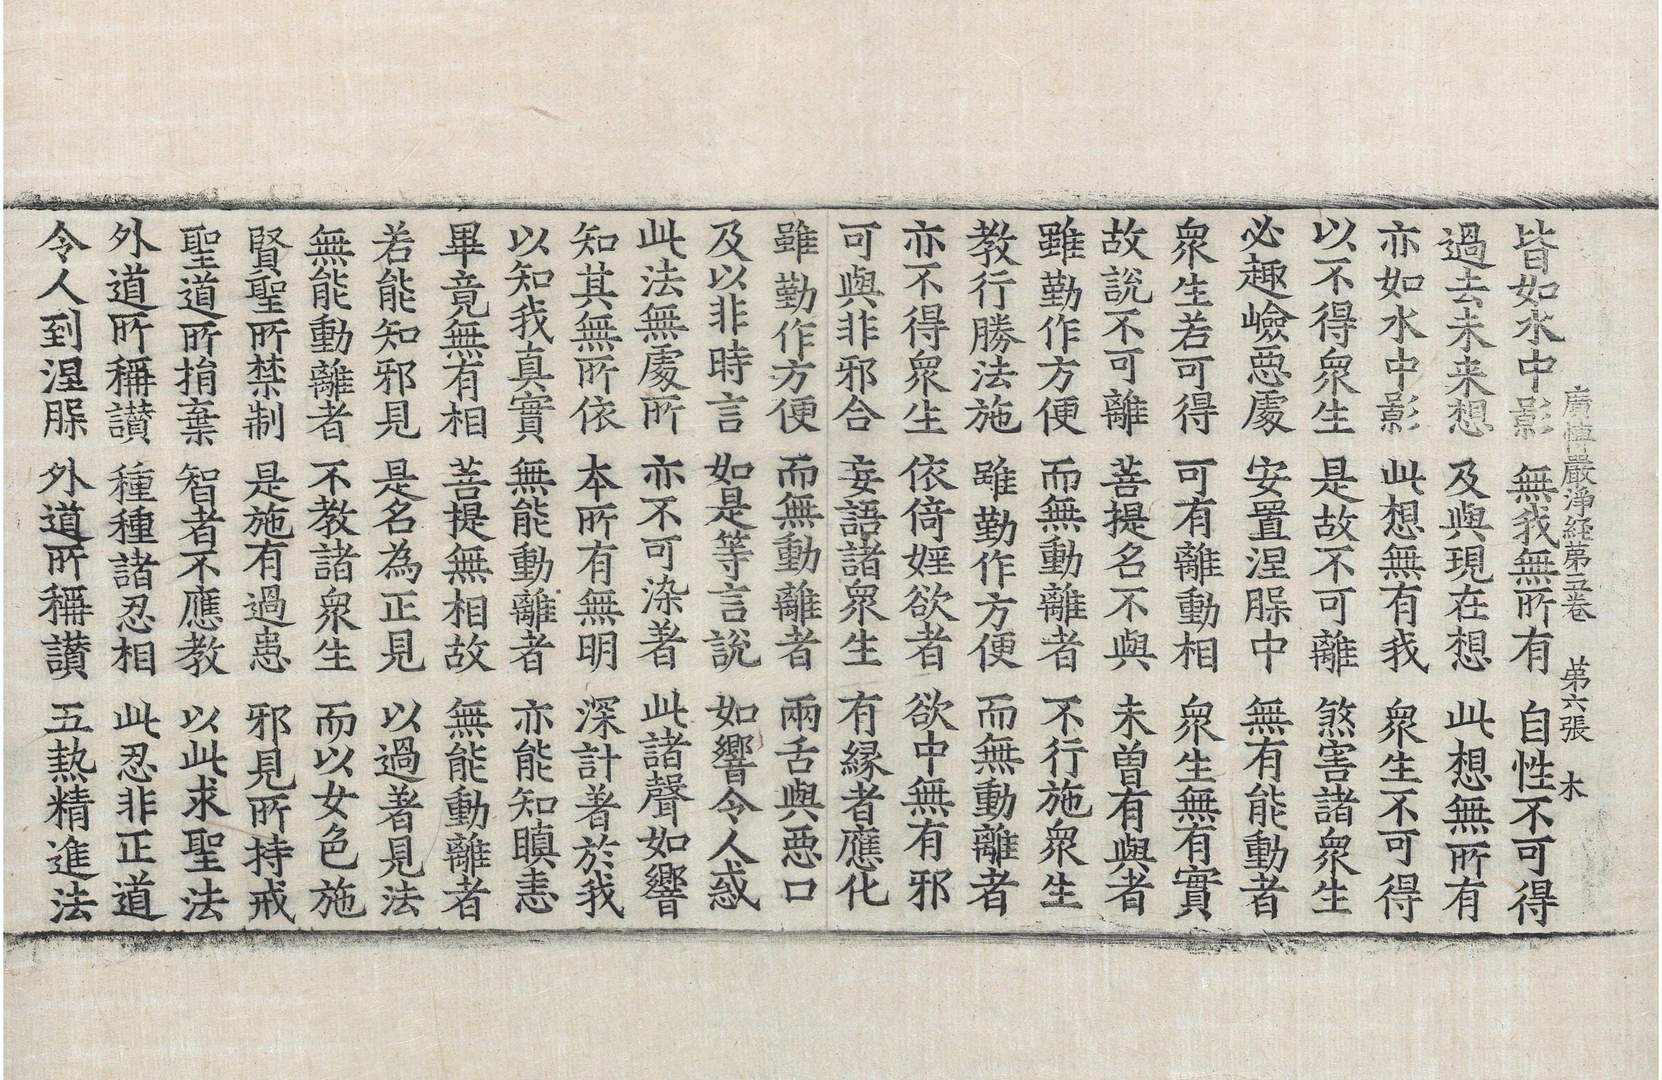 廣博嚴淨経第五卷 第六張 木
皆如水中影 無我無所有 自性不可得
過去未来想 及與現在想 此想無所有
亦如水中影 此想無有我 衆生不可得
以不得衆生 是故不可離 煞害諸衆生
必趣嶮惡處 安置涅槃中 無有能動者
衆生若可得 可有離動相 衆生無有實
故說不可離 菩提名不與 未曾有與者
雖勤作方便 而無動離者 不行施衆生
教行勝法施 雖勤作方便 而無動離者
亦不得衆生 依倚婬欲者 欲中無有邪
可與非邪合 妄語諸衆生 有縁者應化
雖勤作方便 而無動離者 兩舌與惡口
及以非時言 如是等言說 如響令人惑
此法無處所 亦不可染著 此諸聲如響
知其無所依 本所有無明 深計著於我
以知我真實 無能動離者 亦能知瞋恚
畢竟無有相 菩提無相故 無能動離者
若能知邪見 是名為正見 以過著見法
無能動離者 不教諸衆生 而以女色施
賢聖所禁制 是施有過患 邪見所持戒
聖道所捐棄 智者不應教 以此求聖法
外道所稱讃 種種諸忍相 此忍非正道
令人到涅槃 外道所稱讃 五熱精進法